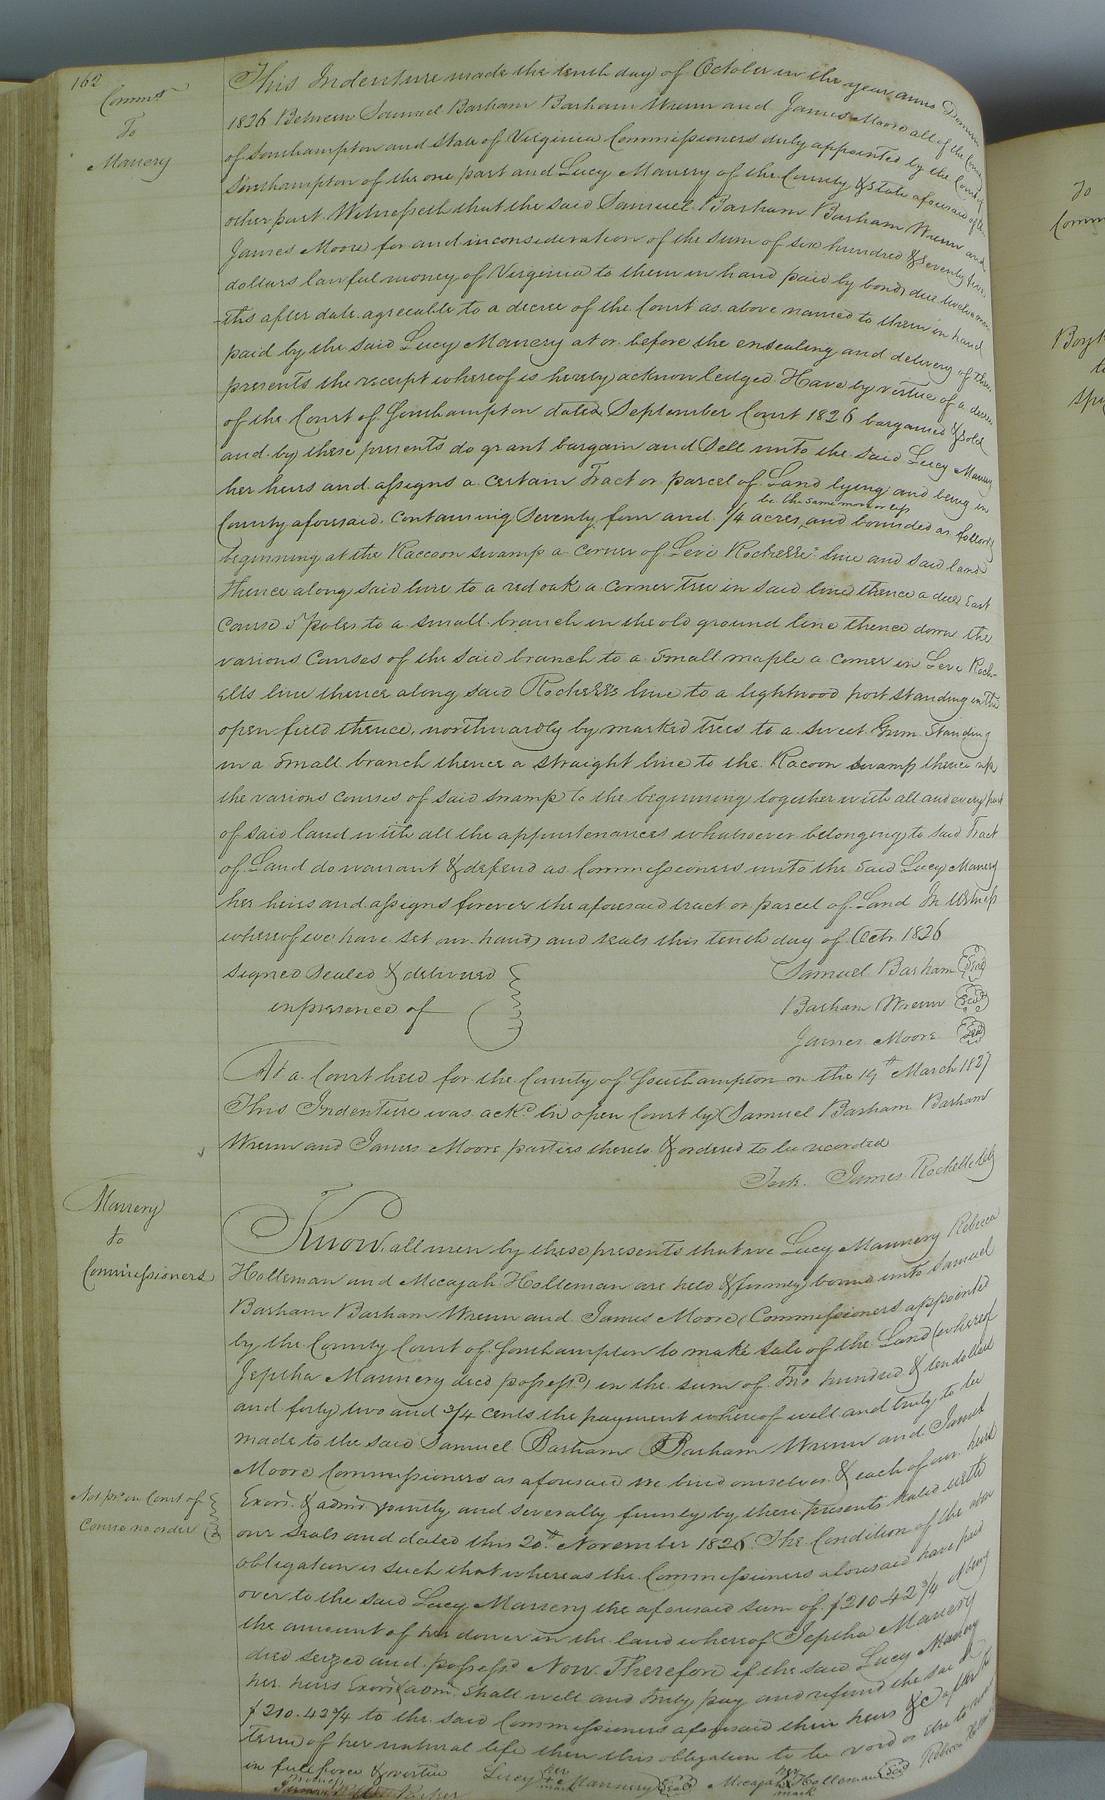 162
Commrs
To
Manery
This Indenture made the tenth day of October in the year anno Domini
1826 Between Samuel Barham Barham Wrenn and James Moore all of the County
of Southampton and State of Virginia Commissioners duly appointed by the Court of
Southampton of the one part and Lucy Manery of the County & State aforesaid of the
other part. Witnesseth that the said Samuel Barham Barham Wrenn and
James Moore for and in consideration of the sum of six hundred & seventy
dollars lawful money of Virginia to them in hand paid by bond due twelve mon
ths after date agreeable to a decree of the Court as above named to them in hand
paid by the said Lucy Manery at or before the ensealing and delivery of these
presents the receipt whereof is hereby acknowledged Have by virtue of a decree
of the Court of Southampton dated September Court 1826 bargained & sold
and by these presents do grant bargain and Sell unto the said Lucy Manery
her heirs and assigns a certain Tract or parcel of Land lying and being in
County aforesaid, containing Seventy four and 1/4 acres, be the same more or less and bounded as follows
beginning at the Raccoon swamp a corner of Levi Rochelle's line and said land
thence along said line to a red oak a corner tree in said line thence a due East
course 5 poles to a small branch in the old ground line thence down the
various courses of the said branch to a small maple a corner in Levi Roch-
ells line thence along said Rochells line to a lightwood post standing in the
open field thence, northwardly by marked trees to a sweet Gum standing
in a small branch thence a straight line to the Racoon swamp thence up
the various courses of said swamp to the beginning together with all and every part
of said land with all the appurtenances whatsoever belonging to said Tract
of Land do warrant & defend as Commissioners unto the said Lucy Manery
her heirs and assigns forever the aforesaid tract or parcel of Land In Witness
whereof we have set our hands and seals this tenth day of Octr 1826
Signed Sealed & delivered
in presence of
Samuel Barham Seal
Barham Wrenn Seal
James Moore Seal
At a Court held for the County of Southampton on the 19th March 1827
This Indenture was ackd in open Court by Samuel Barham Barham
Wrenn and James Moore parties thereto & ordered to be recorded
Teste. James Rochelle Clk
Manery
to
Commissioners
Know all men by these presents that we Lucy Mannery Rebecca
Holleman and Micajah Holleman are held & firmly bound unto Samuel
Barham Barham Wrenn and James Moore, Commissioners appointed
by the County Court of Southampton to make sale of the Land whereof
Jeptha Mannery decd possessd, in the sum of Two hundred & ten dollars
and forty two and 3/4 cents the payment whereof well and truly to be
made to the said Samuel Barham Barham Wrenn and James
Moore Commissioners as aforesaid we bind ourselves & each of our heirs
Exors. & admrs jointly and severally firmly by these presents sealed with
our seals and dated this 20th November 1826 The Condition of the above
obligation is such that whereas the Commissioners aforesaid have paid
over to the said Lucy Manery the aforesaid sum of $210.42 3/4 being
the amount of her dower in the land whereof Jeptha Manery
died seized and possessd Now Therefore if the said Lucy Manery
her heirs Exors admrs. shall well and truly pay and refund the said
$210.42 3/4 to the said Commissioners aforesaid their heirs &c after the
term of her natural life then this obligation to be void or else to remain
in full force & virtue
Lucy her mark Mannery Seal Micajah his mark Holleman Seal Rebecca